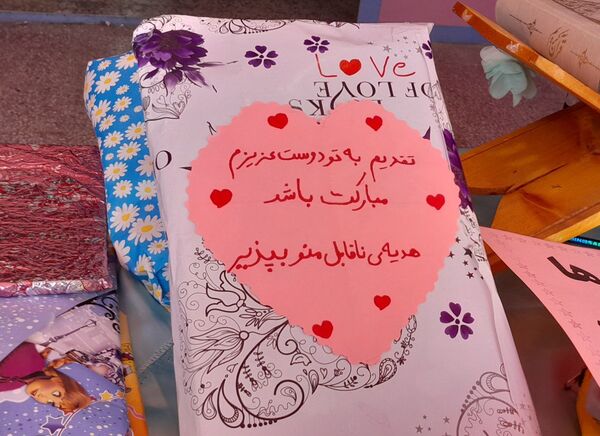 LOVe
OF LOVE
تقدیم به تو دوست عزیزم
مبارکت باشد
هدیه‌ی ناقابل منو بپذیر
ها